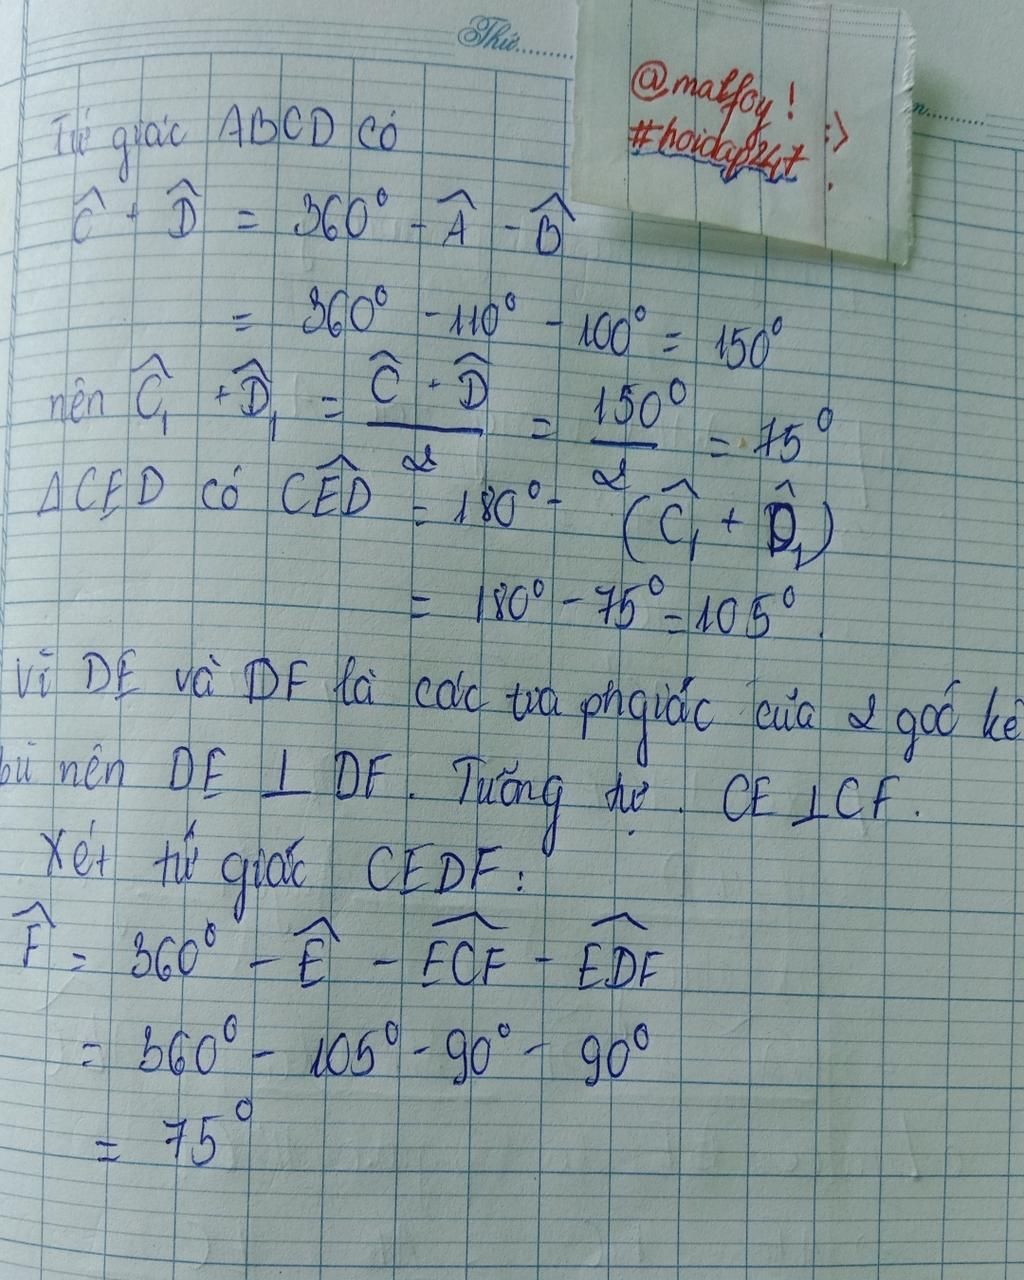 Thứ..........
@malfoy! :>
#hoidap247.
Tứ giác ABCD có
Ĉ + D̂ = 360° - Â - B̂
= 360° - 110° - 100° = 150°
nên Ĉ₁ + D̂₁ = (Ĉ + D̂)/2 = 150°/2 = 75°
ΔCED có CÊD = 180° - (Ĉ₁ + D̂₁)
= 180° - 75° = 105°.
Vì DE và DF là các tia phgiác của 2 góc kề
bù nên DE ⊥ DF. Tương tự. CE ⊥ CF.
Xét tứ giác CEDF:
F̂ = 360° - Ê - EĈF - ED̂F
= 360° - 105° - 90° - 90°
= 75°